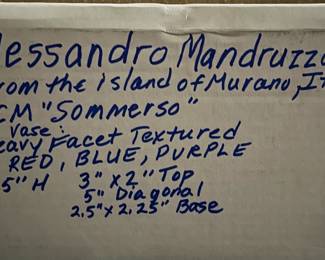 lessandro Mandruzza
rom the island of Murano, It
CM "Sommerso"
Vase:
eavy Facet Textured
RED, BLUE, PURPLE
5" H 3" x 2" Top
5" Diagonal
2.5" x 2.25" Base